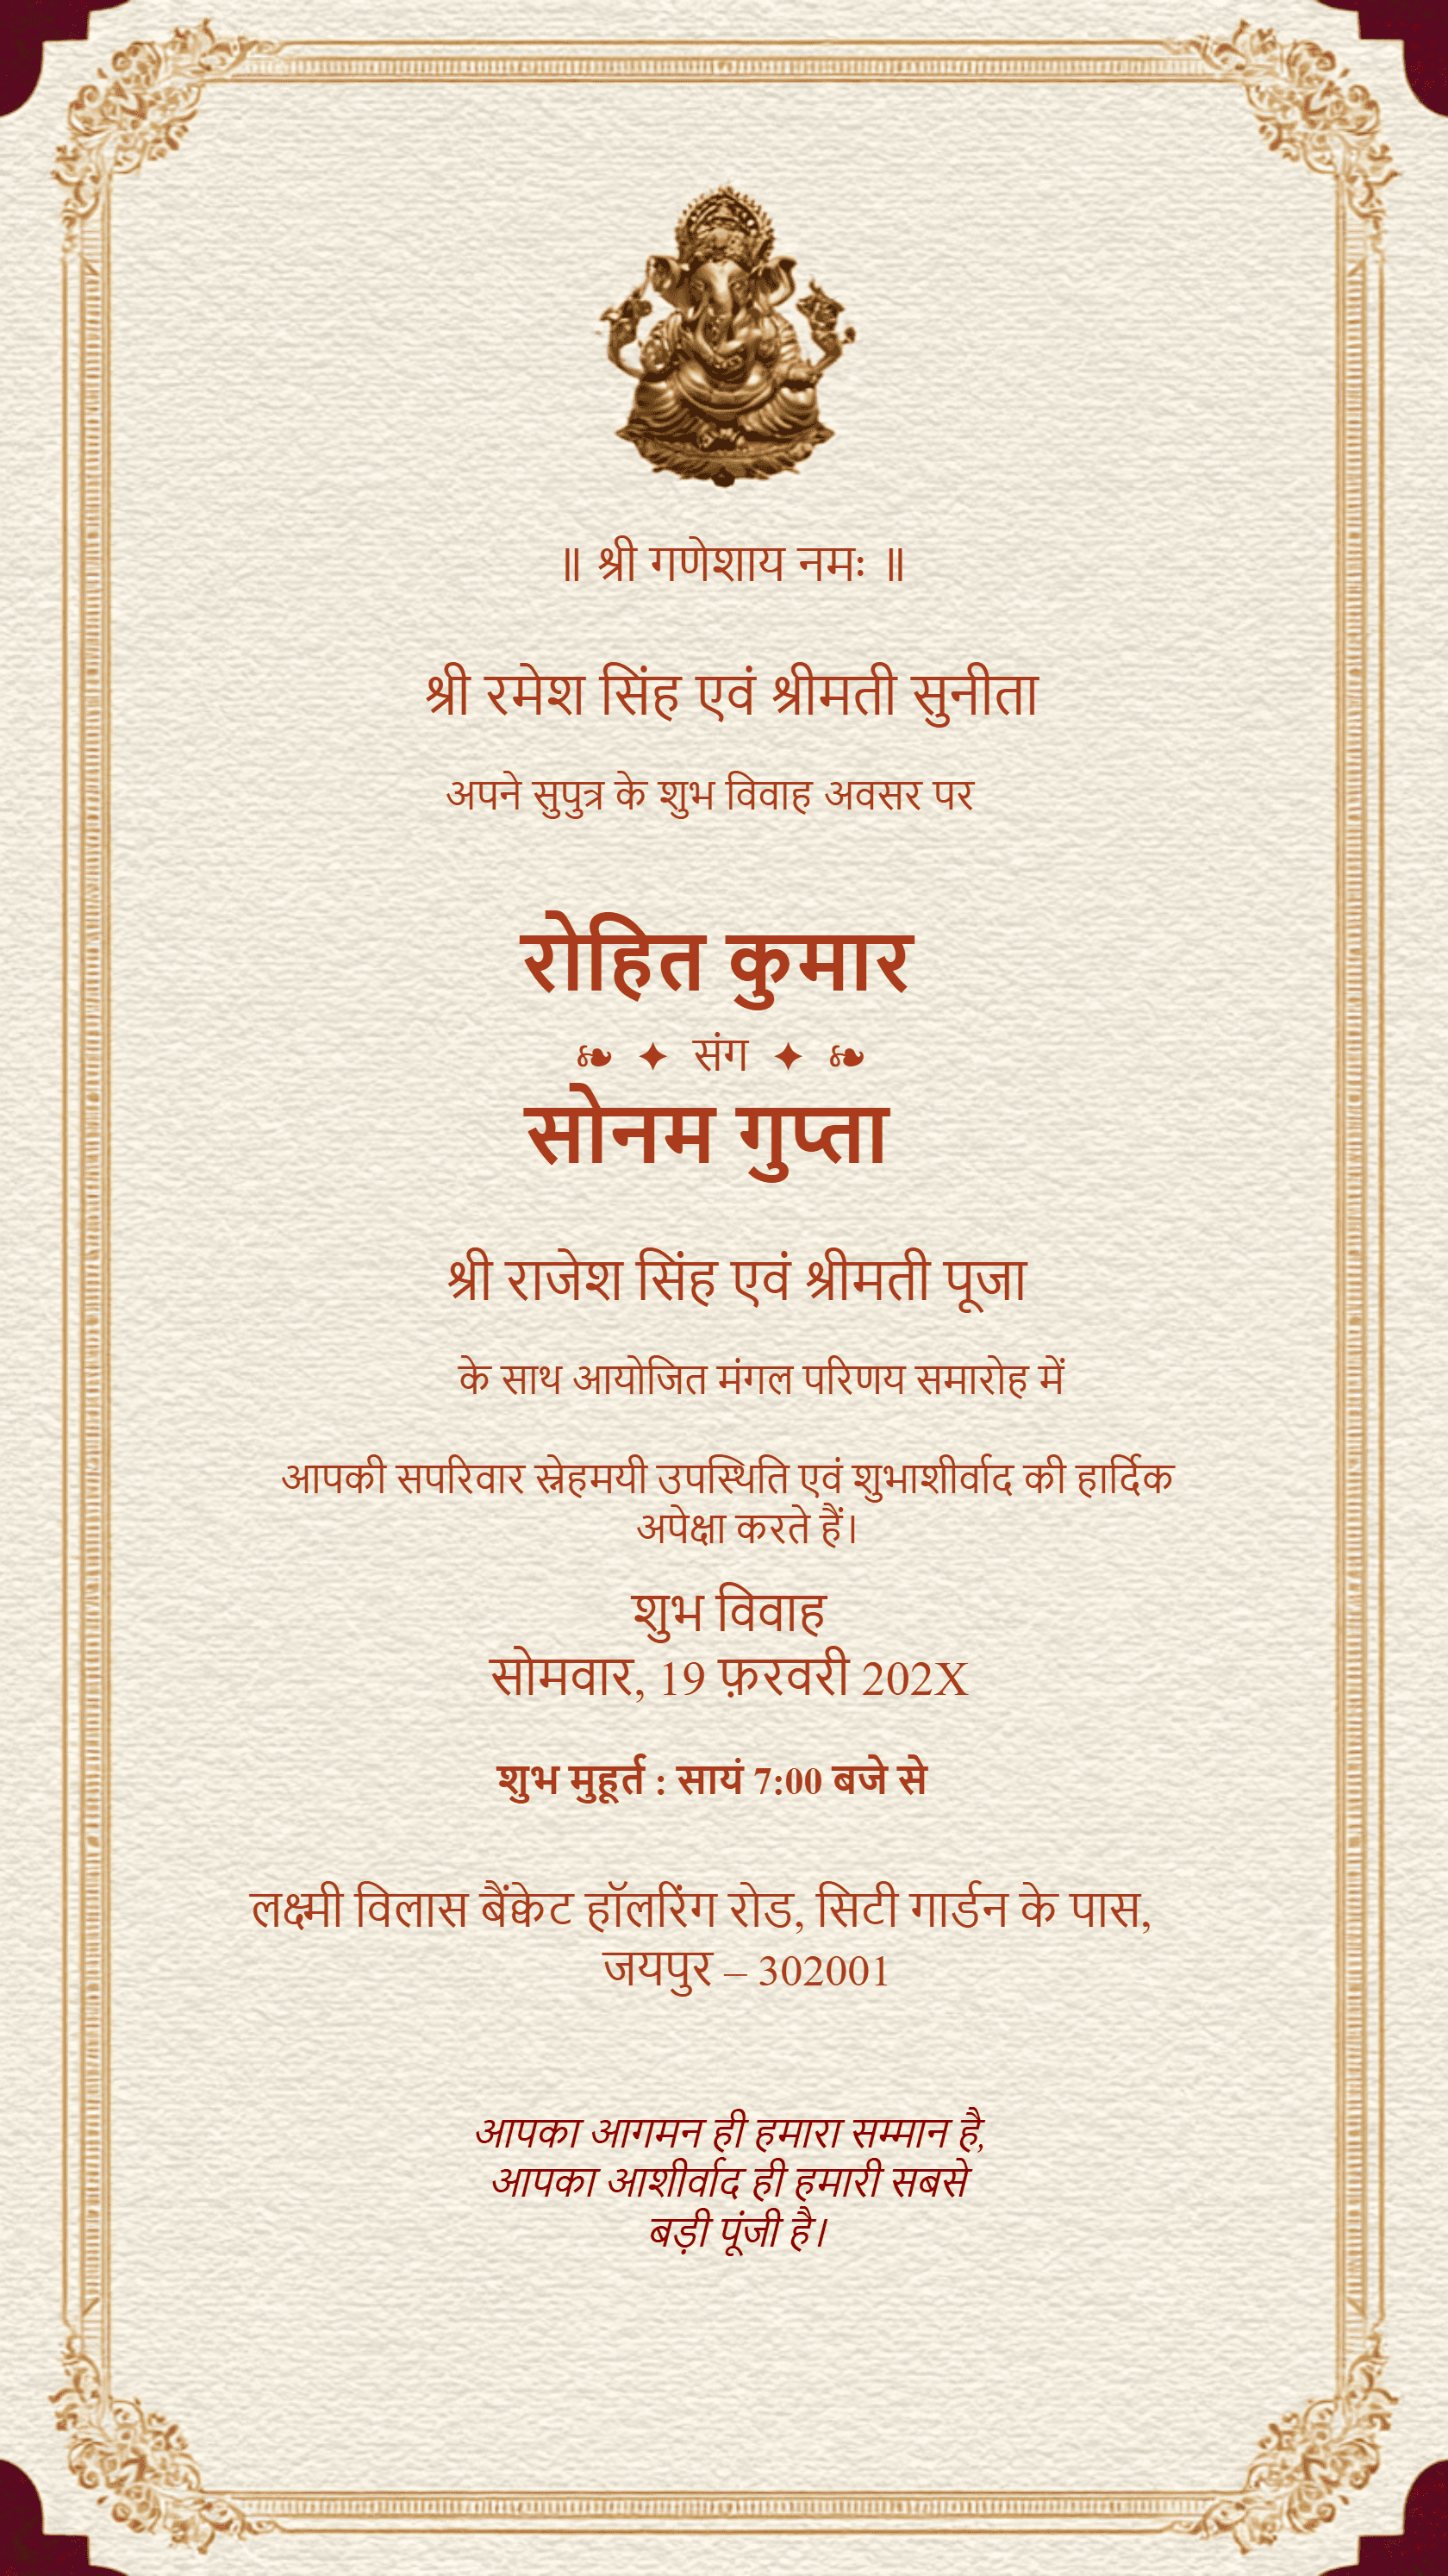 ॥ श्री गणेशाय नमः ॥
श्री रमेश सिंह एवं श्रीमती सुनीता
अपने सुपुत्र के शुभ विवाह अवसर पर
रोहित कुमार
❧ ✦ संग ✦ ❧
सोनम गुप्ता
श्री राजेश सिंह एवं श्रीमती पूजा
के साथ आयोजित मंगल परिणय समारोह में
आपकी सपरिवार स्नेहमयी उपस्थिति एवं शुभाशीर्वाद की हार्दिक
अपेक्षा करते हैं।
शुभ विवाह
सोमवार, 19 फ़रवरी 202X
शुभ मुहूर्त : सायं 7:00 बजे से
लक्ष्मी विलास बैंक्वेट हॉलरिंग रोड, सिटी गार्डन के पास,
जयपुर – 302001
आपका आगमन ही हमारा सम्मान है,
आपका आशीर्वाद ही हमारी सबसे
बड़ी पूंजी है।